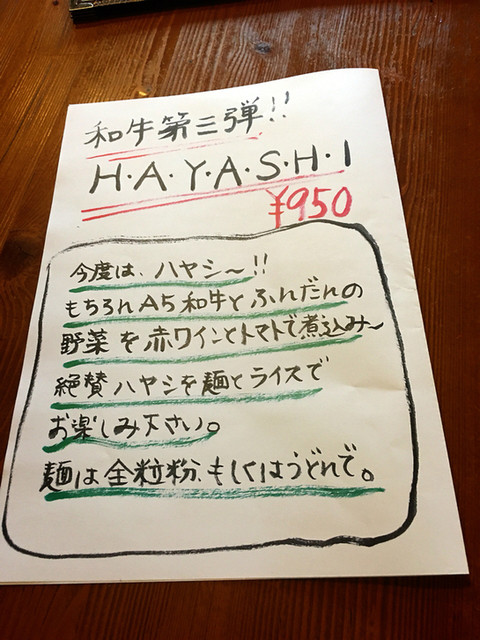 和牛第三弾!!
H・A・Y・A・S・H・I
¥950
今度は、ハヤシ〜!!
もちろんA5和牛とふんだんの
野菜を赤ワインとトマトで煮込み〜
絶賛ハヤシを麺とライスで
お楽しみ下さい。
麺は全粒粉、もしくはうどんで。